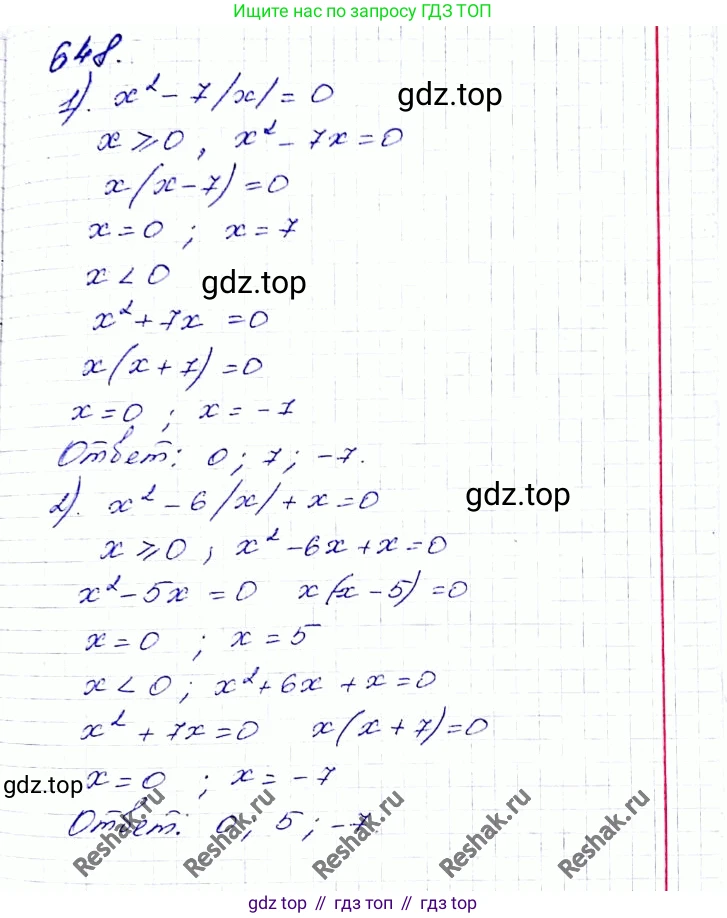 Ищите нас по запросу ГДЗ ТОП
648.
1). x² - 7/x/ = 0
gdz.top
x ⩾ 0, x² - 7x = 0
x(x-7) = 0
x = 0 ; x = 7
x < 0
gdz.top
x² + 7x = 0
x(x + 7) = 0
x = 0 ; x = -7
Ответ: 0; 7; -7.
2). x² - 6/x/ + x = 0
gdz.top
x ⩾ 0, x² - 6x + x = 0
x² - 5x = 0 x(x - 5) = 0
x = 0 ; x = 5
x < 0 ; x² + 6x + x = 0
x² + 7x = 0 x(x + 7) = 0
gdz.top
x = 0 ; x = -7
Ответ: 0; 5; -7
Reshak.ru Reshak.ru Reshak.ru Reshak.ru Reshak.ru
gdz top // гдз топ // gdz.top